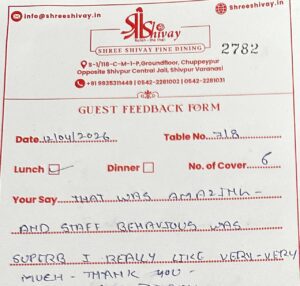 info@shreeshivay.in
Shreeshivay.in
Shivay
SHREE SHIVAY FINE DINING
2782
S-1/118-C-M-1-P,Groundfloor, Chuppeypur
Opposite Shivpur Central Jail, Shivpur Varanasi
+91 9935311449 | 0542-2281002 | 0542-2281031
GUEST FEEDBACK FORM
Date 12/04/2026 Table No. 7/8
Lunch Dinner No. of Cover 6
Your Say THAT WAS AMAZING -
AND STAFF BEHAVIOUS WAS
SUPERB I REALLY LIKE VERY-VERY
MUCH - THANK YOU -